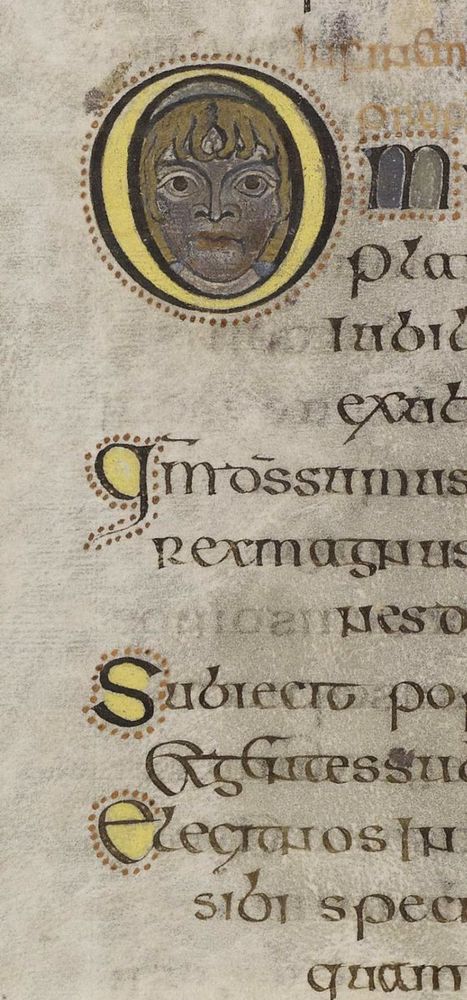 Om
pla
iubil
exul
qm̄ds̄summus
rexmagnus
nesd
Subiecit pop
Etgentessu
elegitnos in
sibi speci
quam